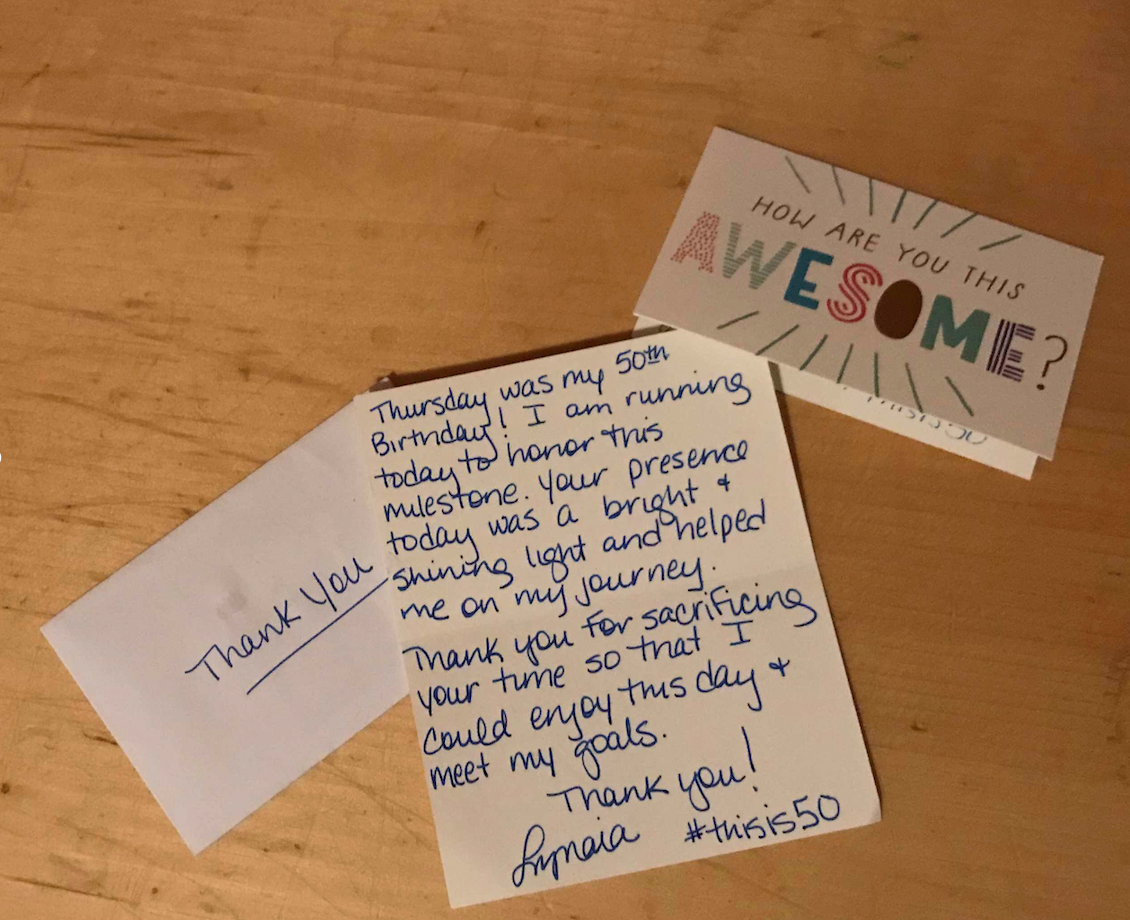 HOW ARE YOU THIS
AWESOME?
Thisis50
Thank You
Thursday was my 50th
Birthday! I am running
today to honor this
milestone. Your presence
today was a bright +
shining light and helped
me on my journey.
Thank you for sacrificing
your time so that I
could enjoy this day +
meet my goals.
Thank you!
#thisis50